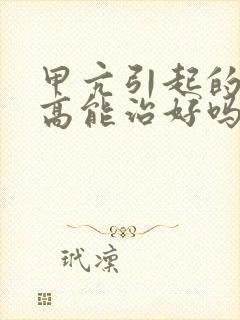 甲亢引起的
高能治好吗
玳凛